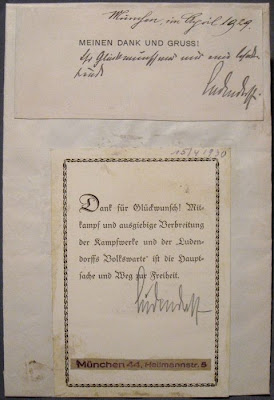 München, im April 1929.
MEINEN DANK UND GRUSS!
Ihr Glückwunsch und
Ludendorff
15/4 1930
Dank für Glückwunsch! Mit-
kampf und ausgiebige Verbreitung
der Kampfwerke und der „Luden-
dorffs Volkswarte" ist die Haupt-
sache und Weg zur Freiheit.
Ludendorff
München 44, Heilmannstr. 5